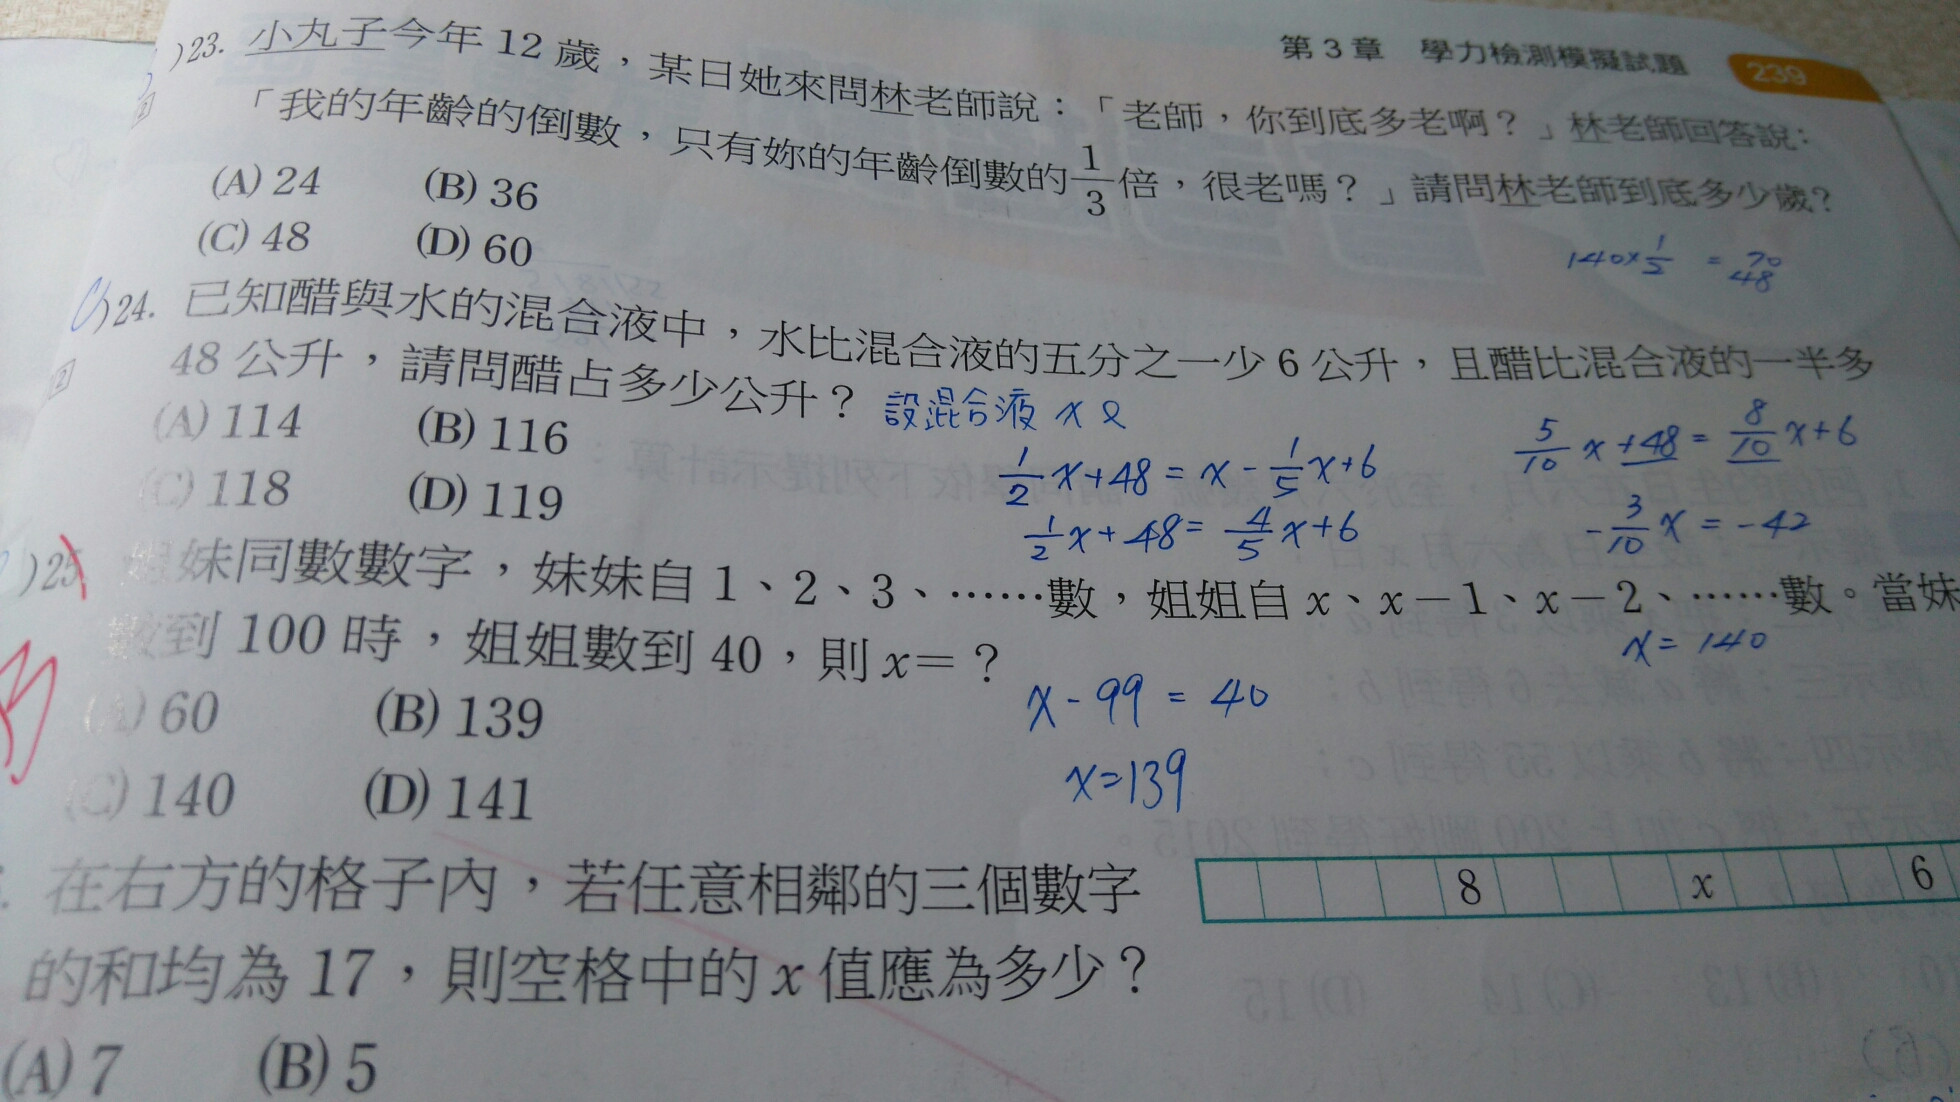 第3章 學力檢測模擬試題 239
)23. 小丸子今年12歲，某日她來問林老師說：「老師，你到底多老啊？」林老師回答說：
「我的年齡的倒數，只有妳的年齡倒數的1/3倍，很老嗎？」請問林老師到底多少歲?
(A) 24 (B) 36
(C) 48 (D) 60
140×1/2 = 70
48
C)24. 已知醋與水的混合液中，水比混合液的五分之一少6公升，且醋比混合液的一半多
2
48公升，請問醋占多少公升？ 設混合液 x
(A) 114 (B) 116
(C) 118 (D) 119
1/2x+48=x-1/5x+6
1/2x+48=4/5x+6
5/10x+48=8/10x+6
-3/10x=-42
x=140
)25. 妹同數數字，妹妹自1、2、3、……數，姐姐自x、x－1、x－2、……數。當妹
數到100時，姐姐數到40，則x＝？
(A) 60 (B) 139
(C) 140 (D) 141
x-99=40
x=139
B
在右方的格子內，若任意相鄰的三個數字
的和均為17，則空格中的x值應為多少？
8 x 6
(A) 7 (B) 5